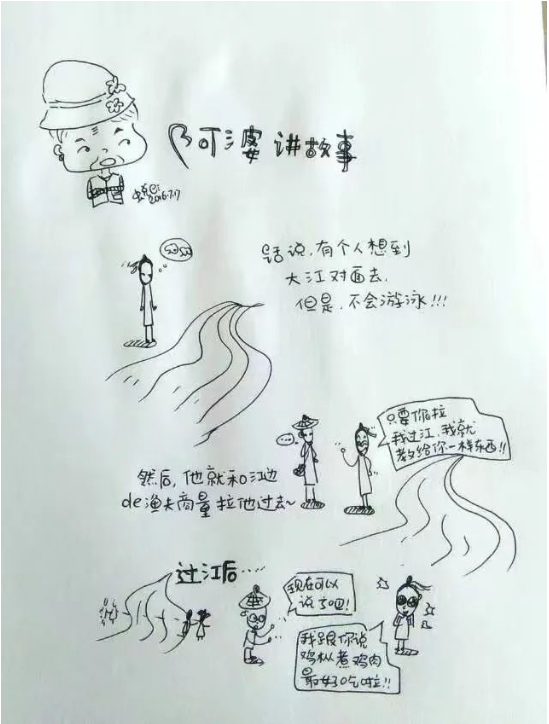 阿婆讲故事
2016.7.17
话说,有个人想到
大江对面去,
但是,不会游泳!!!
只要你拉
我过江,我就
教给你一样东西!!
然后,他就和江边
de渔夫商量拉他过去~
过江后……
现在可以
说了吧!
我跟你说
鸡枞煮鸡肉
最好吃啦!!